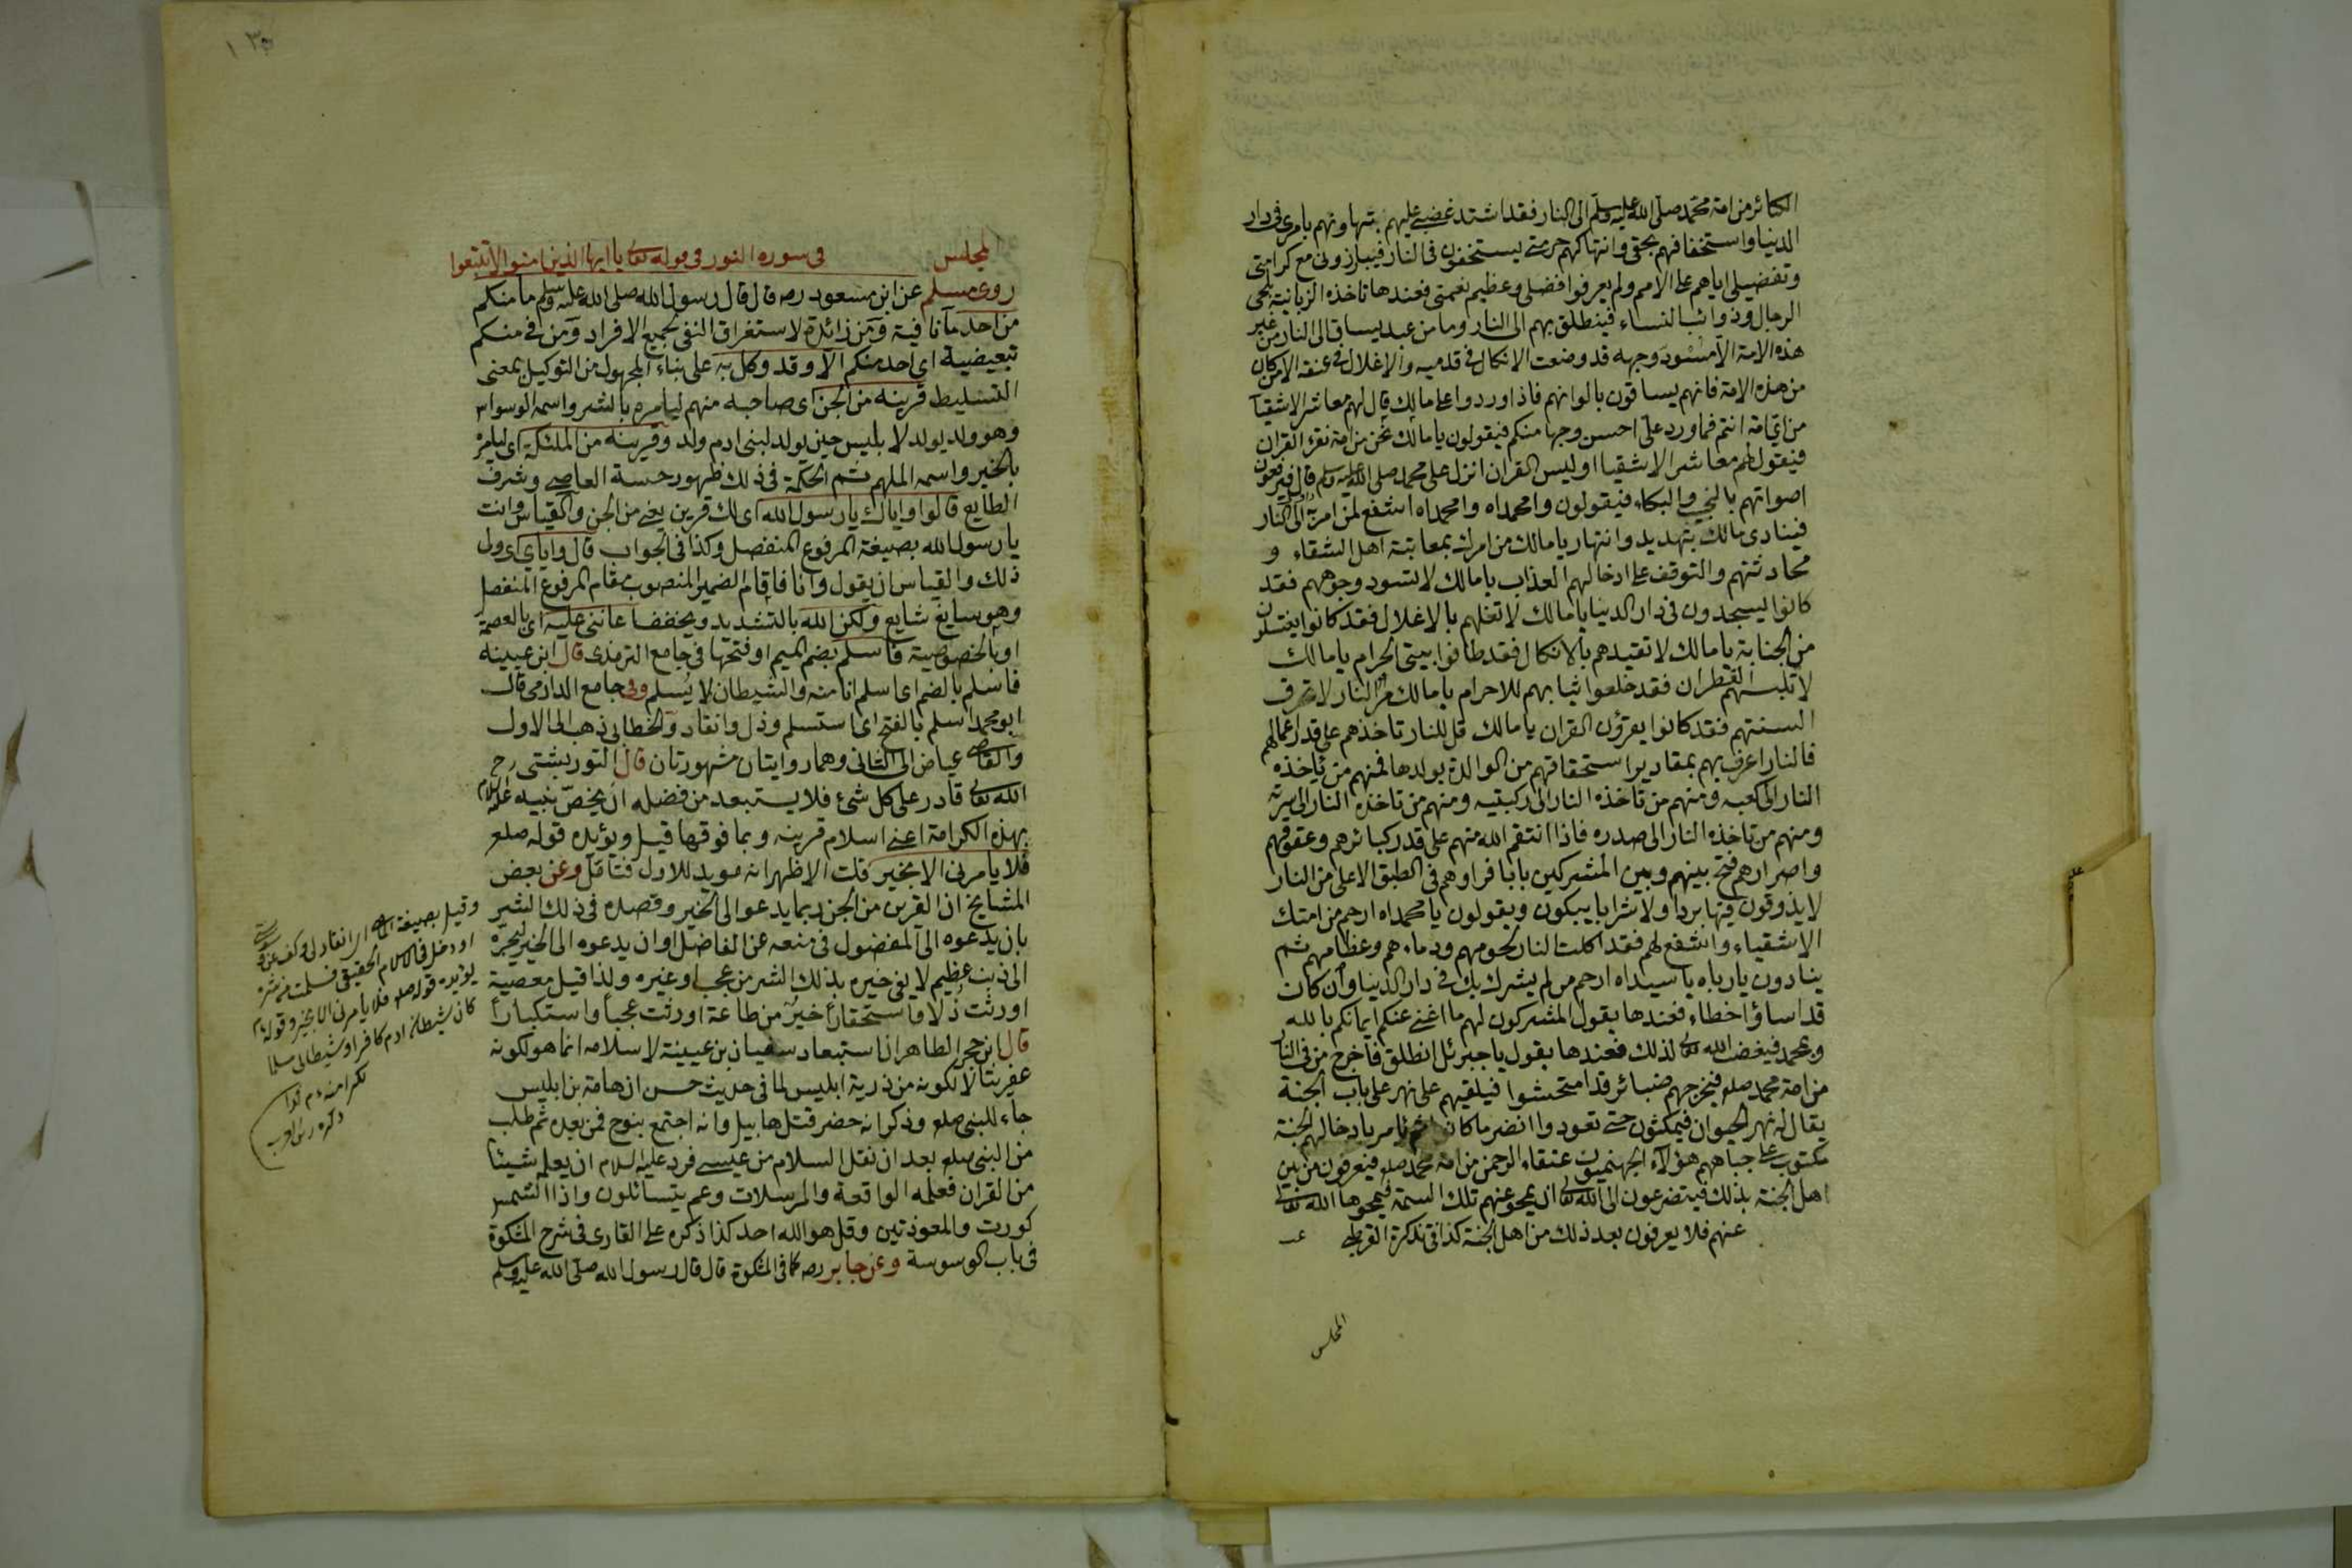 الكبائر من امة محمد صلى الله عليه وسلم الى النار فقد اشتد غضبي عليهم بتهاونهم بامرى فى دار
الدنيا واستخفافهم بحقى وانتهاكهم حرمتى يستخفون فى النار فيبارزونى مع كرامتى
وتفضيلى اياهم على الامم ولم يعرفوا فضلى وعظيم نعمتى فعندها تاخذ الزبانية بلحى
الرجال وذوائب النساء فينطلق بهم الى النار وما من عبد يساق الى النار من غير
هذه الامة الا مسْوَد وجهه قد وضعت الانكال فى قدميه والاغلال فى عنقه الا من كان
من هذه الامة فانهم يساقون بالوانهم فاذا وردوا على مالك قال لهم معاشر الاشقيا
من اى امة انتم فما ورد على احسن وجها منكم فيقولون يا مالك نحن من امة نقرء القران
فيقول لهم معاشر الاشقيا اوليس القران انزل على محمد صلى الله عليه وسلم قال فيرفعون
اصواتهم بالنحيب والبكاء فيقولون وامحمداه وامحمداه اشفع لمن امر به الى النار
فينادى مالك بتهديد وانتهار يا مالك من امرك بمعاتبة اهل الشقاء و
محادثتهم والتوقف على ادخالهم العذاب يا مالك لا تسود وجوههم فقد
كانوا يسجدون فى دار الدنيا يا مالك لا تغلهم بالاغلال فقد كانوا يغتسلون
من الجنابة يا مالك لا تقيدهم بالانكال فقد طافوا بيتى الحرام يا مالك
لا تلبسهم القطران فقد خلعوا ثيابهم للاحرام يا مالك مر النار لا تحرق
السنتهم فقد كانوا يقرؤن القران يا مالك قل للنار تاخذهم على قدر اعمالهم
فالنار اعرف بهم بمقادير استحقاقهم من الوالدة بولدها فمنهم من تاخذه
النار الى كعبه ومنهم من تاخذه النار الى ركبتيه ومنهم من تاخذه النار الى سرته
ومنهم من تاخذه النار الى صدره فاذا انتقم الله منهم على قدر كبائرهم وعقوقهم
واصرارهم فتح بينهم وبين المشركين بابا فراوهم فى الطبق الاعلى من النار
لا يذوقون فيها بردا ولا شرابا يبكون ويقولون يا محمداه ارحم من امتك
الاشقياء واشفع لهم فقد اكلت النار لحومهم ودماءهم وعظامهم ثم
ينادون يا رباه يا سيداه ارحم من لم يشرك بك فى دار الدنيا وان كان
قد اساؤ اخطاء فعندها يقول المشركون لهم ما اغنى عنكم ايمانكم بالله
وبمحمد فيغضب الله تعالى لذلك فعندها يقول يا جبرئل انطلق فاخرج من فى النار
من امة محمد صلعم فيخرجهم ضبائر قد امتحشوا فيلقيهم على نهر على باب الجنة
يقال له نهر الحيوان فيمكثون حتى تعودوا انضر ما كانوا ثم يامر بادخالهم الجنة
مكتوب على جباههم هؤلآء الجهنميون عتقاء الرحمن من امة محمد صلعم فيعرفون من بين
اهل الجنة بذلك فيتضرعون الى الله تعالى ان يمحو عنهم تلك السمة فيمحوها الله تعالى
عنهم فلا يعرفون بعد ذلك من اهل الجنة كذا فى تذكرة القرطبى
المجلس
١٣٥
المجلس فى سورة النور فى قوله تعالى يا ايها الذين امنوا لا تتبعوا
روى مسلم عن ابن مسعود رضه قال قال رسول الله صلى الله عليه وسلم ما منكم
من احد ما نافية ومن زائدة لاستغراق النفى لجميع الافراد ومن فى منكم
تبعيضية اى احد منكم الا وقد وكل به على بناء المجهول من التوكيل بمعنى
التسليط قرينه من الجن اى صاحبه منهم ليامره بالشر واسمه الوسواس
وهو ولد يولد لابليس حين يولد لبنى ادم ولد وقرينه من الملئكة اى ليامره
بالخير واسمه الملهم ثم الحكمة فى ذلك ظهور خسة العاصى وشرف
الطايع قالوا واياك يا رسول الله اى لك قرين يعنى من الجن والقياس وانت
يا رسول الله بصيغة المرفوع المنفصل وكذا فى الجواب قال واياى اى ولى
ذلك والقياس ان يقول وانا فاقام الضمير المنصوب مقام المرفوع المنفصل
وهو سايغ شايع ولكن الله بالتشديد ويخفف اعاننى عليه اى بالعصمة
او بالخصوصية فاسلم بضم الميم او فتحها فى جامع الترمذى قال ابن عيينه
فاسلم بالضم اى اسلم انا منه والشيطان لا يُسلم وفى جامع الدارمى قال
ابو محمد اسلم بالفتح اى استسلم وذل وانقاد والخطابى ذهب الى الاول
والقاضى عياض الى الثانى وهما روايتان مشهورتان قال التوربشتى رح
الله تعالى قادر على كل شئ فلا يستبعد من فضله ان يخص نبيه عليه السلام
بهذه الكرامة اعنى اسلام قرينه وبما فوقها قيل ويؤيده قوله صلعم
فلا يامرنى الا بخير قلت الاظهر انه مويد للاول فتامل وعن بعض
المشايخ ان القرين من الجن ربما يدعوا الى الخير وقصده فى ذلك الشر
بان يدعوه الى المفضول فى منعه عن الفاضل او ان يدعوه الى الخير ليجره
الى ذنب عظيم لا يفى خيره بذلك الشر من عجب وغيره ولذا قيل معصية
اورثت ذلا واستحقارا خير من طاعة اورثت عجبا واستكبارا
قال ابن حجر الظاهر ان استبعاد سفيان بن عيينة لاسلامه انما هو لكونه
عفريتا لا لكونه من ذرية ابليس لما فى حديث حسن ان هامة بن ابليس
جاء للنبى صلعم وذكر انه حضر قتل هابيل وانه اجتمع بنوح فمن بعده ثم طلب
من النبى صلعم بعد ان نقل السلام من عيسى فرد عليه السلام ان يعلمه شيئا
من القران فعلمه الواقعة والمرسلات وعم يتسائلون واذا الشمس
كورت والمعوذتين وقل هو الله احد كذا ذكره على القارى فى شرح المشكوة
فى باب الوسوسة وعن جابر رضه كما فى المشكوة قال قال رسول الله صلى الله عليه وسلم
وقيل بصيغة الماضى اى انقاد لى وكف عن
او دخل فى الاسلام الحقيقى فسلمت من شره
يؤيده قوله صلعم فلا يامرنى الا بخير وقوله
كان شيطان ادم كافرا وشيطانى مسلما